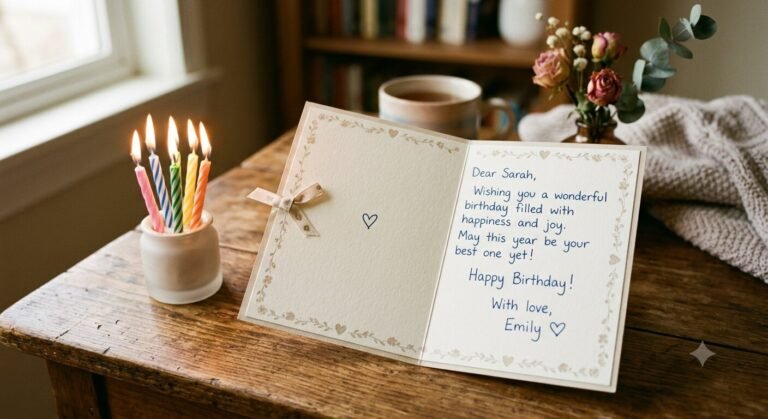 Dear Sarah,
Wishing you a wonderful
birthday filled with
happiness and joy.
May this year be your
best one yet!
Happy Birthday!
With love,
Emily ♡